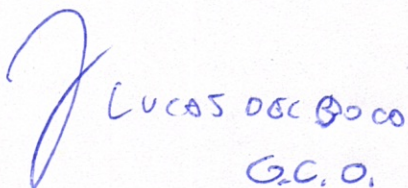 LUCAS DEL BOCO
G.C.O.